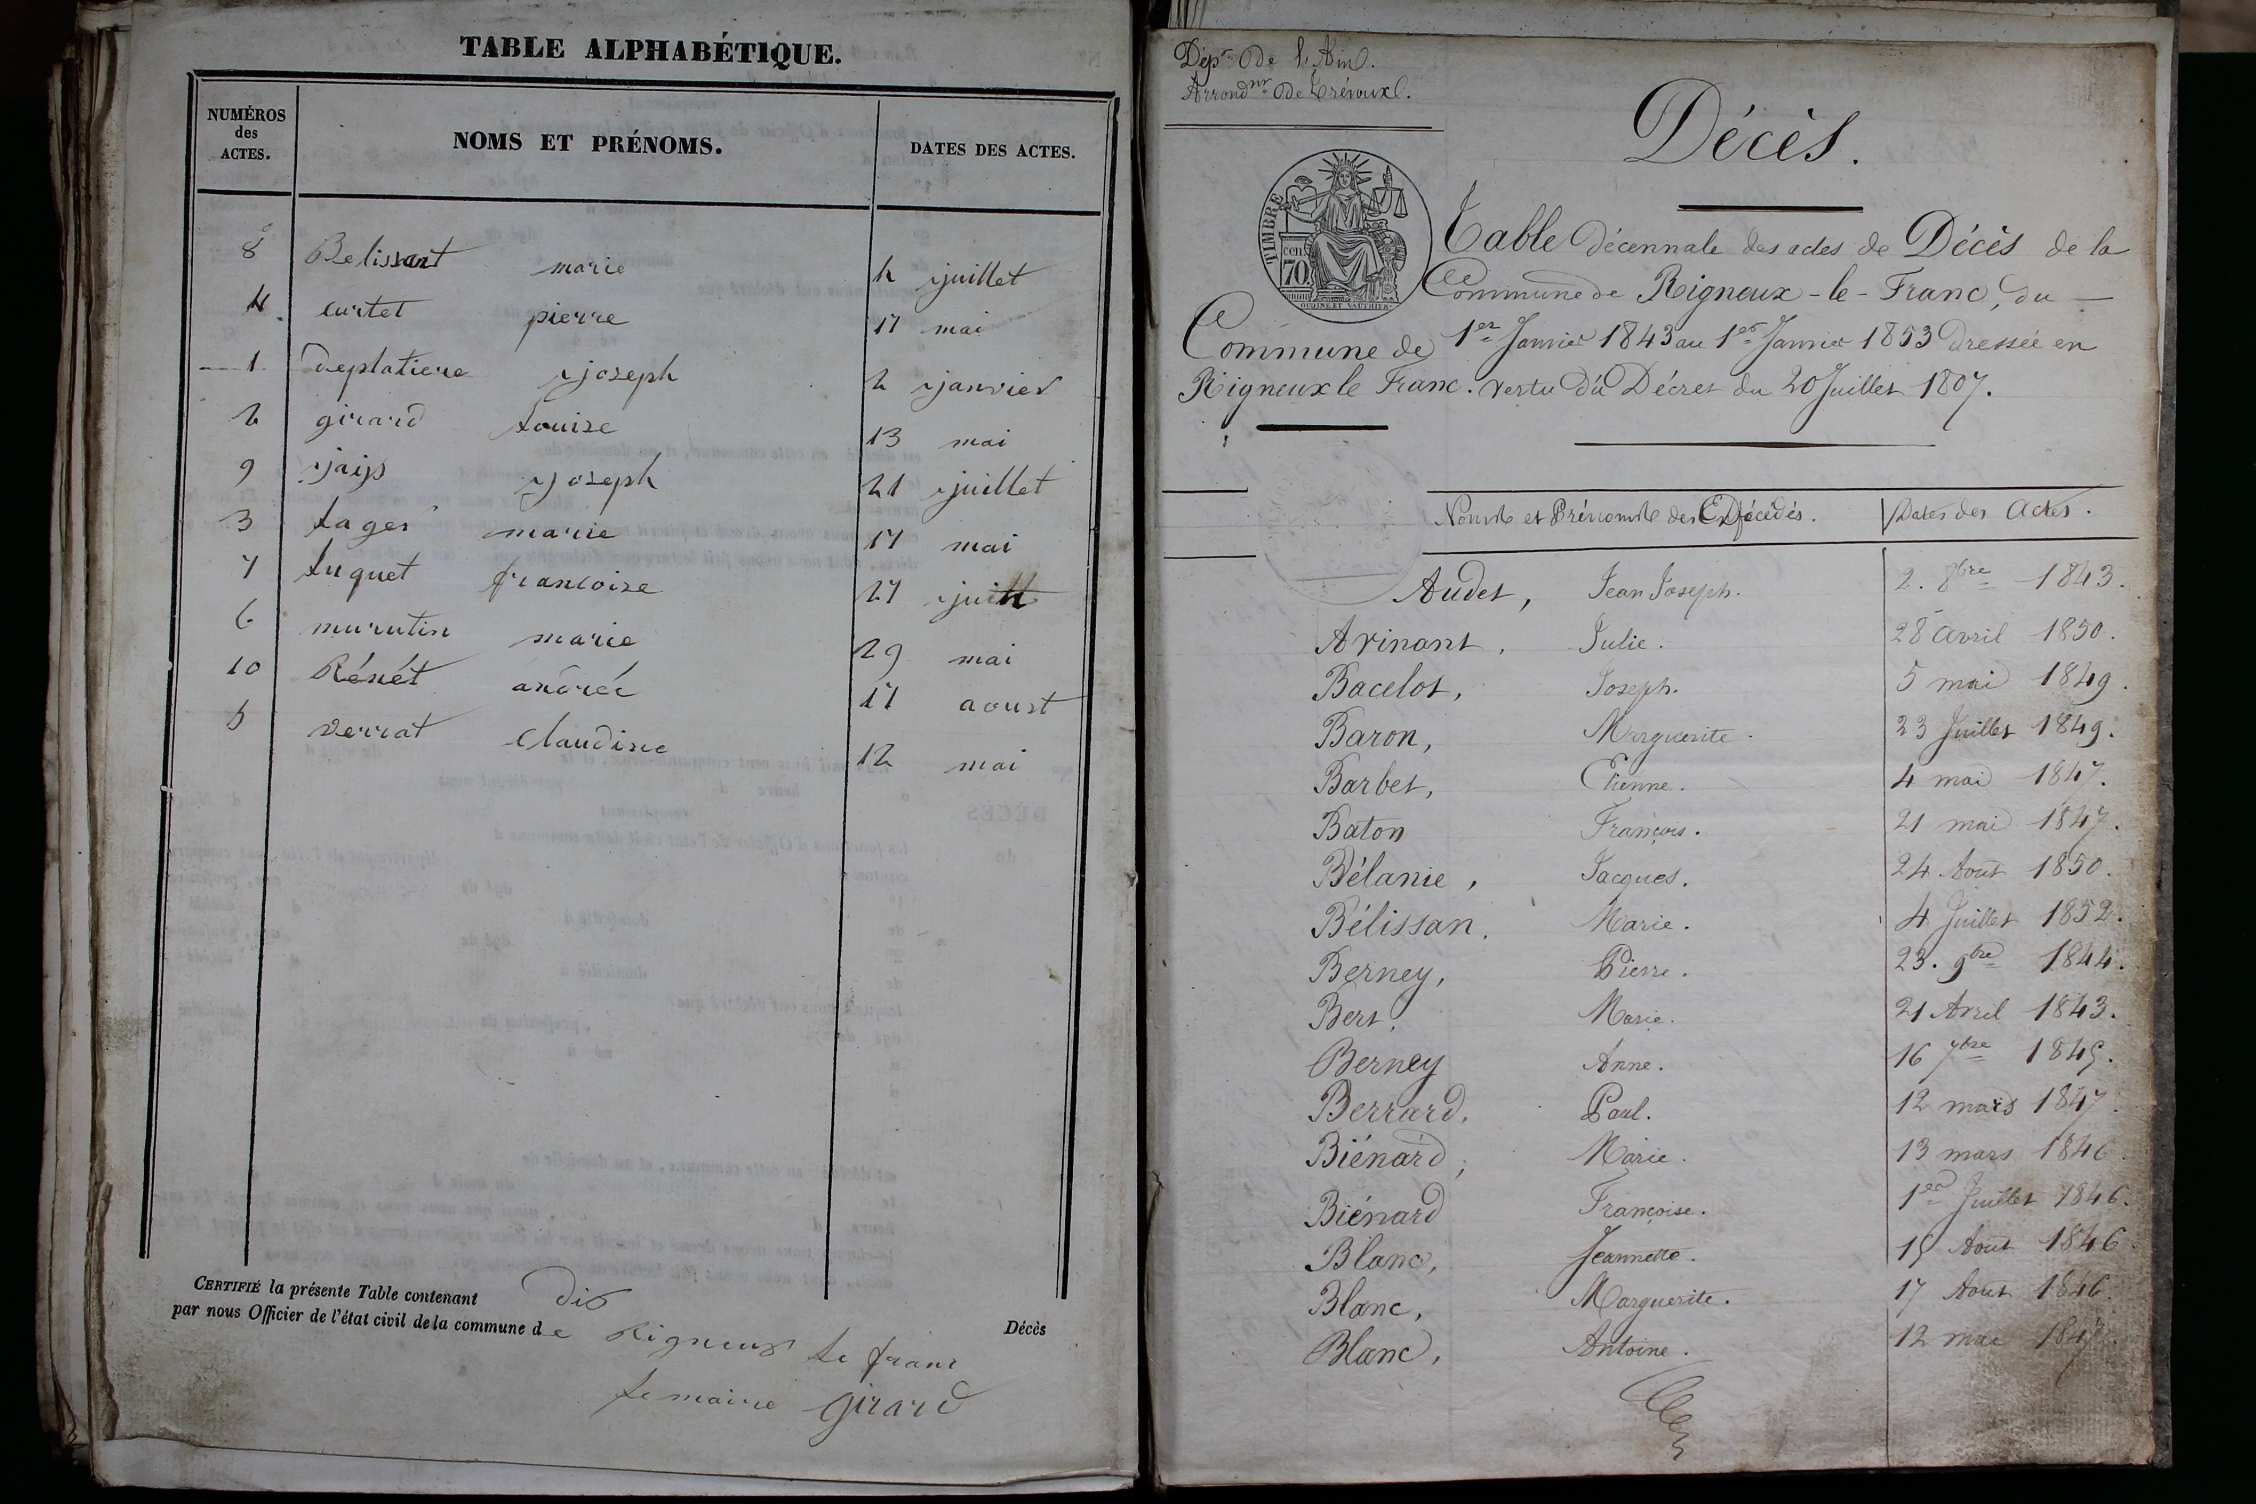 TABLE ALPHABÉTIQUE.
NUMÉROS des ACTES. NOMS ET PRÉNOMS. DATES DES ACTES.
8 Belissant marie 4 juillet
4 curtet pierre 17 mai
1 deplatiere joseph 2 janvier
2 girard Louise 13 mai
9 jays joseph 21 juillet
3 Lager marie 17 mai
7 Luquet francoise 27 juill
6 murutin marie 29 mai
10 Rénét andréé 17 aoust
5 verrat Claudine 12 mai
CERTIFIÉ la présente Table contenant dix Décès
par nous Officier de l'état civil de la commune de Rigneux le franc
Le maire girard
Dépt de l'Ain.
Arrondnt de Trévoux.
Décès.
TIMBRE
cen.
70
OUDINE ET VAUTHIER
Table Décennale des actes de Décès de la
Commune de Rigneux-le-Franc, du
Commune de
Rigneux le Franc.
1er Janvier 1843 au 1er Janvier 1853 dressée en
vertu du Décret du 20 Juillet 1807.
Noms et Prénoms des Décédés. Dates des Actes.
Audet, Jean Joseph. 2. 8bre 1843.
Avinant. Julie. 28 Avril 1850.
Bacelot, Joseph. 5 mai 1849.
Baron, Marguerite. 23 Juillet 1849.
Barbet, Etienne. 4 mai 1847.
Baton François. 21 mai 1847.
Bélanie, Jacques. 24 Août 1850.
Bélissan. Marie. 4 Juillet 1852.
Berney, Pierre. 23. 9bre 1844.
Bert. Marie. 21 Avril 1843.
Berney Anne. 16 7bre 1845.
Berrard. Paul. 12 mars 1847.
Biénard, Marie. 13 mars 1846
Biénard Françoise. 1er Juillet 1846.
Blanc, Jeannette. 15 Août 1846
Blanc, Marguerite. 17 Août 1846.
Blanc, Antoine. 12 mai 1847.